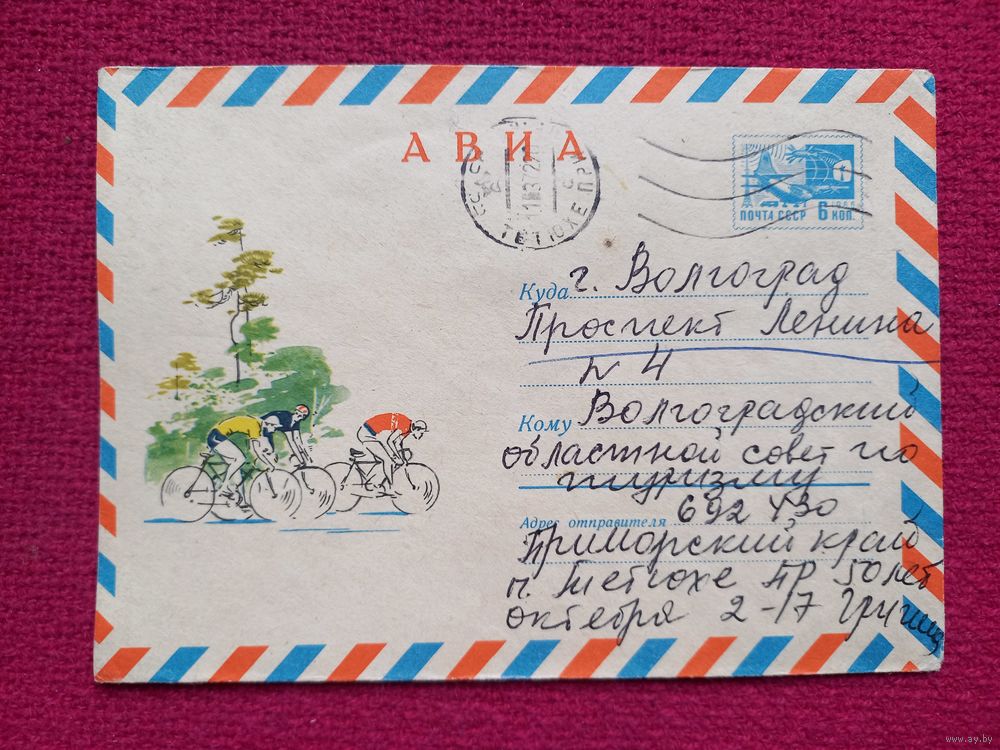 АВИА
СССР
ТЕТЮХЕ ПРИ
ПОЧТА СССР 6 КОП.
1966
Куда г. Волгоград
Проспект Ленина
N 4
Кому Волгоградский
областной совет по
туризму
692430
Адрес отправителя
Приморский край
п. Тетюхе пр 50 лет
октября 2-17
www.ay.by